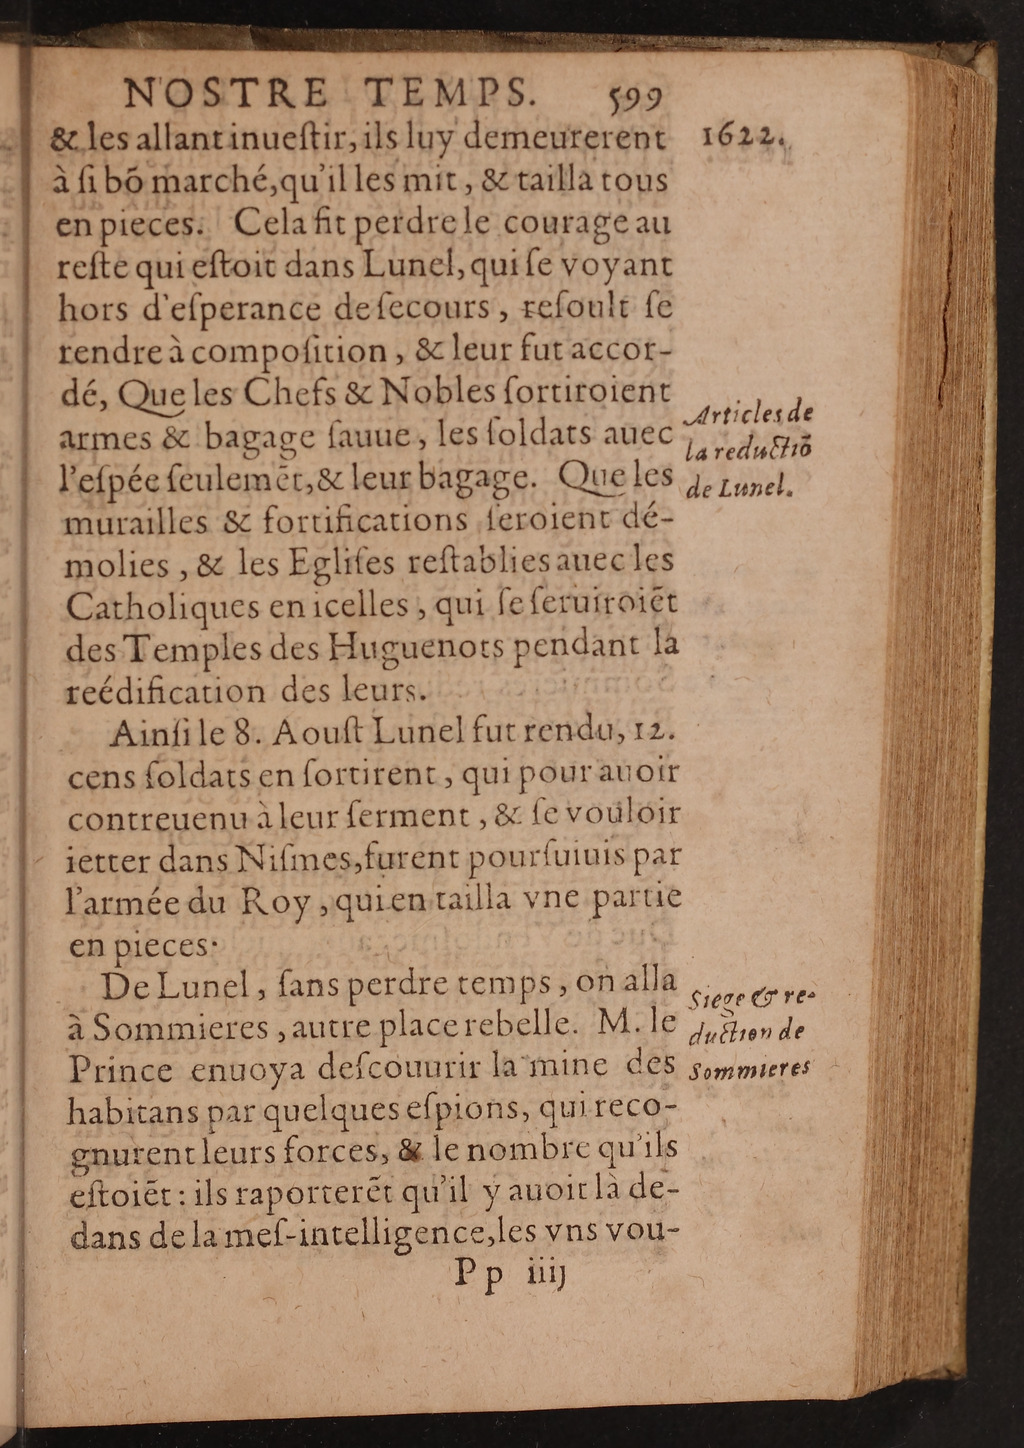 NOSTRE TEMPS. 599
& les allant inueſtir, ils luy demeurerent
1622.
à ſi bõ marché, qu'il les mit, & tailla tous
en pieces. Cela fit perdre le courage au
reſte qui eſtoit dans Lunel, qui ſe voyant
hors d'eſperance de ſecours, reſoult ſe
rendre à compoſition, & leur fut accor-
dé, Que les Chefs & Nobles ſortiroient
armes & bagage ſauue, les ſoldats auec
l'eſpée ſeulemẽt, & leur bagage. Que les
Articles de
la reductiõ
de Lunel.
murailles & fortifications ſeroient dé-
molies, & les Egliſes reſtablies auec les
Catholiques en icelles, qui ſe ſeruiroiẽt
des Temples des Huguenots pendant la
reédification des leurs.
Ainſi le 8. Aouſt Lunel fut rendu, 12.
cens ſoldats en ſortirent, qui pour auoir
contreuenu à leur ſerment, & ſe vouloir
ietter dans Niſmes, furent pourſuiuis par
l'armée du Roy, qui en tailla vne partie
en pieces.
De Lunel, ſans perdre temps, on alla
à Sommieres, autre place rebelle. M. le
Prince enuoya deſcouurir la mine des
Siege & re-
duction de
Sommieres
habitans par quelques eſpions, qui reco-
gnurent leurs forces, & le nombre qu'ils
eſtoiẽt : ils raporterẽt qu'il y auoit là de-
dans de la meſ-intelligence, les vns vou-
Pp iiij